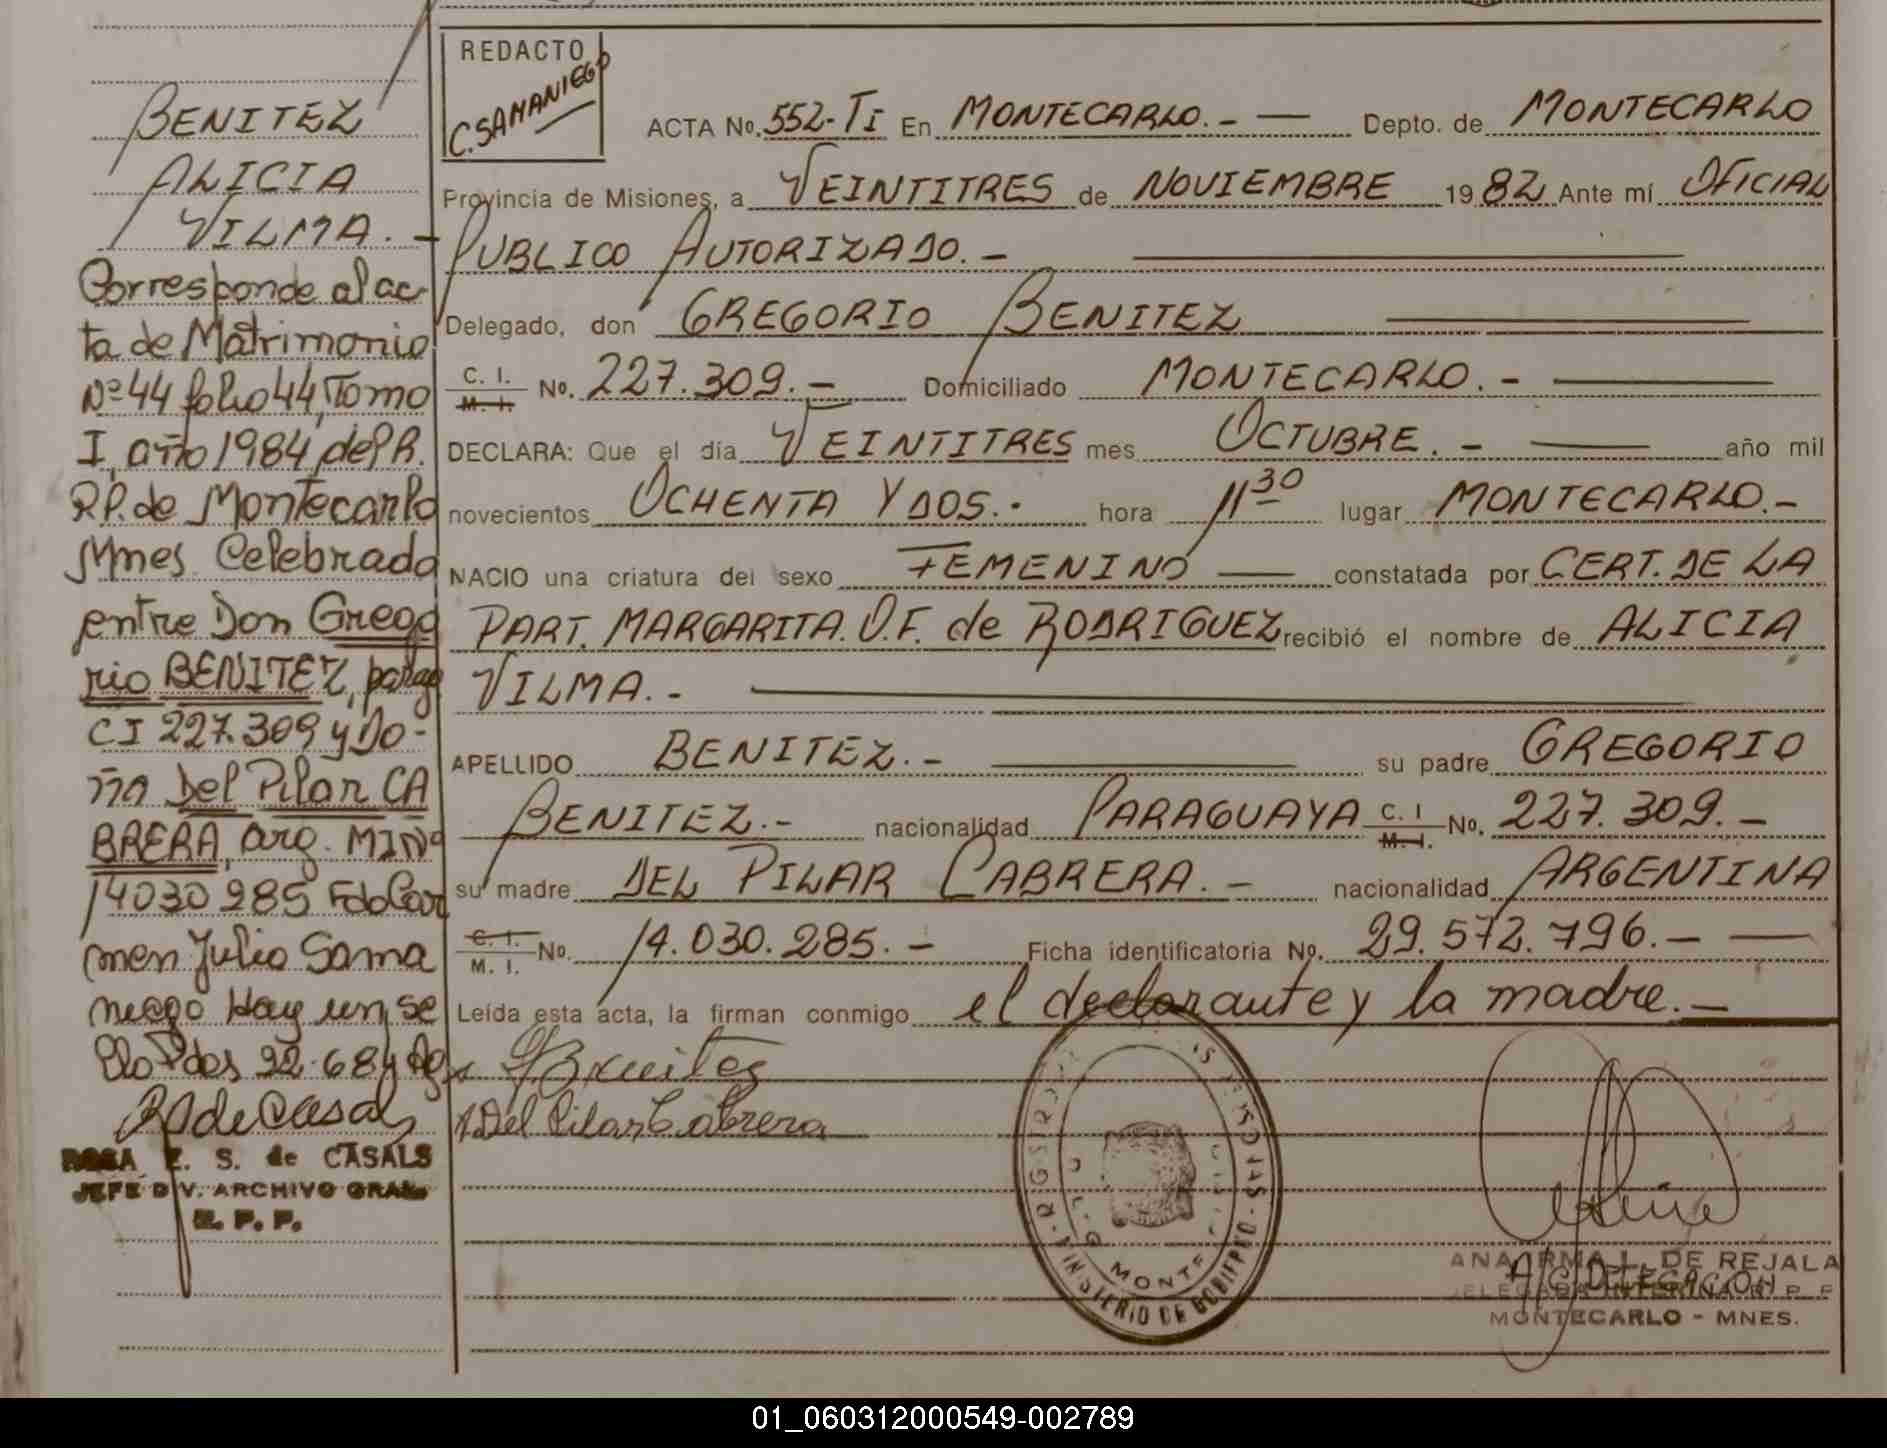 BENITEZ
ALICIA
VILMA.-
Corresponde al ac-
ta de Matrimonio
Nº 44 folio 44, Tomo
I, año 1984, del R.
R.P. de Montecarlo
Mnes. Celebrado
entre Don Grego
rio BENITEZ, parag
CI 227.309 y Do-
ña Del Pilar CA
BRERA, arg. MI Nº
14030285 Fdo Car
men Julio Sama
niego Hay un se
llo Pdas 22-6-84
R S de Casals
ROSA E. S. de CASALS
JEFE DIV. ARCHIVO GRAL.
R. P. P.
REDACTO
C. SAMANIEGO
ACTA No. 552-TI En MONTECARLO.- Depto. de MONTECARLO
Provincia de Misiones, a VEINTITRES de NOVIEMBRE 1982 Ante mí OFICIAL
PUBLICO AUTORIZADO.-
Delegado, don GREGORIO BENITEZ
C. I. M. I. No. 227.309.- Domiciliado MONTECARLO.-
DECLARA: Que el día VEINTITRES mes OCTUBRE.- año mil
novecientos OCHENTA Y DOS.- hora 11 30 lugar MONTECARLO.-
NACIO una criatura del sexo FEMENINO constatada por CERT. DE LA
PART. MARGARITA. O.F. de RODRIGUEZ recibió el nombre de ALICIA
VILMA.-
APELLIDO BENITEZ.- su padre GREGORIO
BENITEZ.- nacionalidad PARAGUAYA C. I M. I. No. 227.309.-
su madre DEL PILAR CABRERA.- nacionalidad ARGENTINA
C. I. M. I. No. 14.030.285.- Ficha identificatoria No. 29.572.796.-
Leída esta acta, la firman conmigo el declarante y la madre.-
Benitez
Del Pilar Cabrera
MINISTERIO DE GOBIERNO
ANA IRMA L. DE REJALA
A/C DELEGACION
DELEGADA INTERINA R. P. P.
MONTECARLO - MNES.
01_060312000549-002789